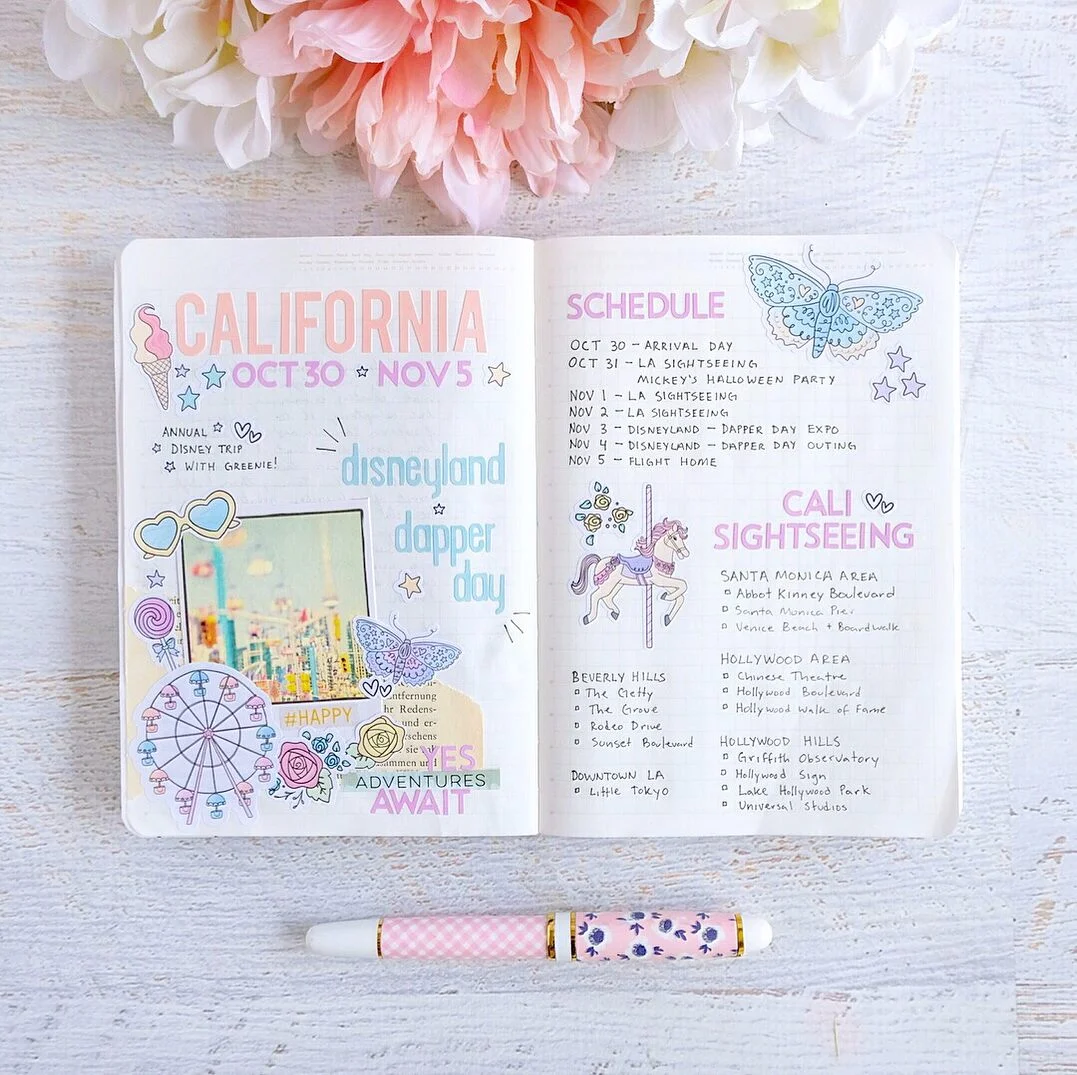 CALIFORNIA
OCT 30 NOV 5
ANNUAL
DISNEY TRIP
WITH GREENIE!
disneyland
dapper
day
#HAPPY
ntfernung
hr Redens-
und er-
rsehens
sie
sammen und
YES
ADVENTURES
AWAIT
SCHEDULE
OCT 30 - ARRIVAL DAY
OCT 31 - LA SIGHTSEEING
MICKEY'S HALLOWEEN PARTY
NOV 1 - LA SIGHTSEEING
NOV 2 - LA SIGHTSEEING
NOV 3 - DISNEYLAND - DAPPER DAY EXPO
NOV 4 - DISNEYLAND - DAPPER DAY OUTING
NOV 5 - FLIGHT HOME
CALI
SIGHTSEEING
SANTA MONICA AREA
Abbot Kinney Boulevard
Santa Monica Pier
Venice Beach + Boardwalk
HOLLYWOOD AREA
Chinese Theatre
Hollywood Boulevard
Hollywood Walk of Fame
HOLLYWOOD HILLS
Griffith Observatory
Hollywood Sign
Lake Hollywood Park
Universal Studios
BEVERLY HILLS
The Getty
The Grove
Rodeo Drive
Sunset Boulevard
DOWNTOWN LA
Little Tokyo